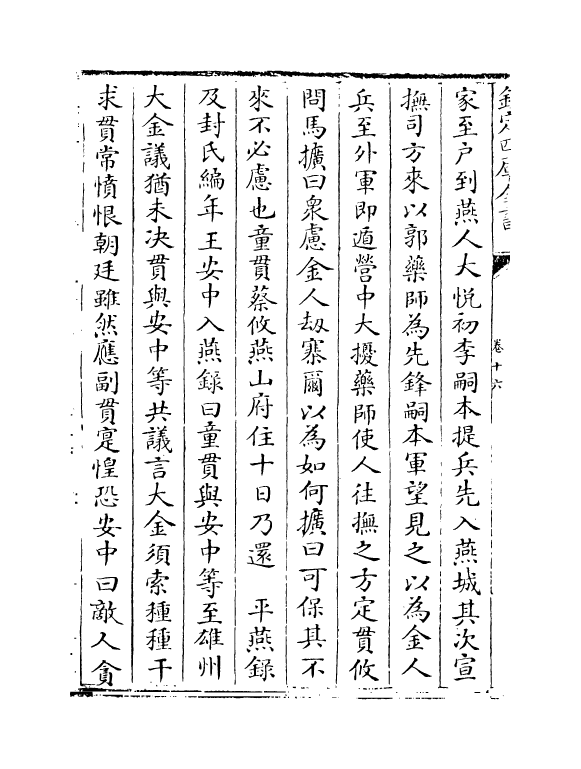 欽定四庫全書
卷十六
家至户到燕人大悦初李嗣本提兵先入燕城其次宣
撫司方來以郭藥師為先鋒嗣本軍望見之以為金人
兵至外軍即遁營中大擾藥師使人往撫之方定貫攸
問馬擴曰衆慮金人刼寨爾以為如何擴曰可保其不
來不必慮也童貫蔡攸燕山府住十日乃還　平燕錄
及封氏編年王安中入燕錄曰童貫與安中等至雄州
大金議猶未决貫與安中等共議言大金須索種種干
求貫常憤恨朝廷雖然應副貫寔惶恐安中曰敵人貪